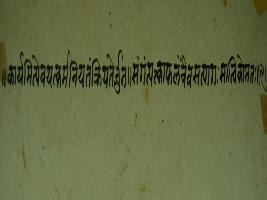 ॥कार्यमित्येवयत्कर्मनियतंक्रियतेर्जुन॥संगंत्यत्काफलंचैवसत्यागः सात्विकोमतः॥९॥